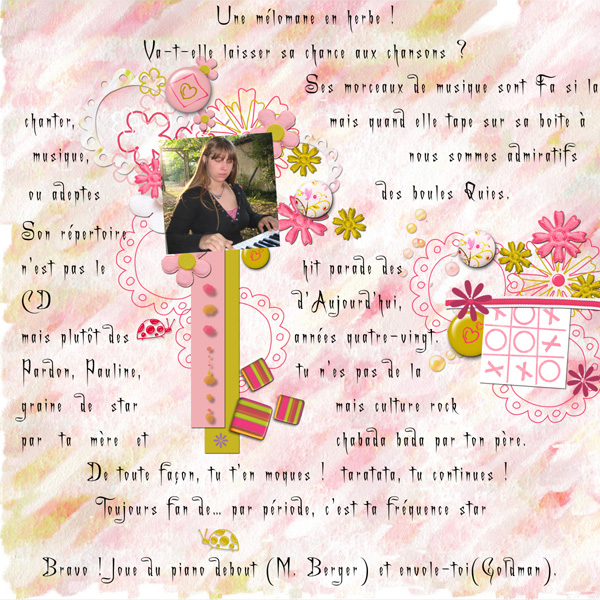 Une mélomane en herbe !
Va-t-elle laisser sa chance aux chansons ?
Ses morceaux de musique sont Fa si la
chanter, mais quand elle tape sur sa boite à
musique, nous sommes admiratifs
ou adeptes des boules Quies.
Son répertoire
n'est pas le hit parade des
CD d'Aujourd'hui,
mais plutôt des années quatre-vingt.
Pardon, Pauline, tu n'es pas de la
graine de star mais culture rock
par ta mère et chabada bada par ton père.
De toute façon, tu t'en moques ! taratata, tu continues !
Toujours fan de... par période, c'est ta fréquence star
Bravo ! Joue du piano debout (M. Berger) et envole-toi(Goldman).